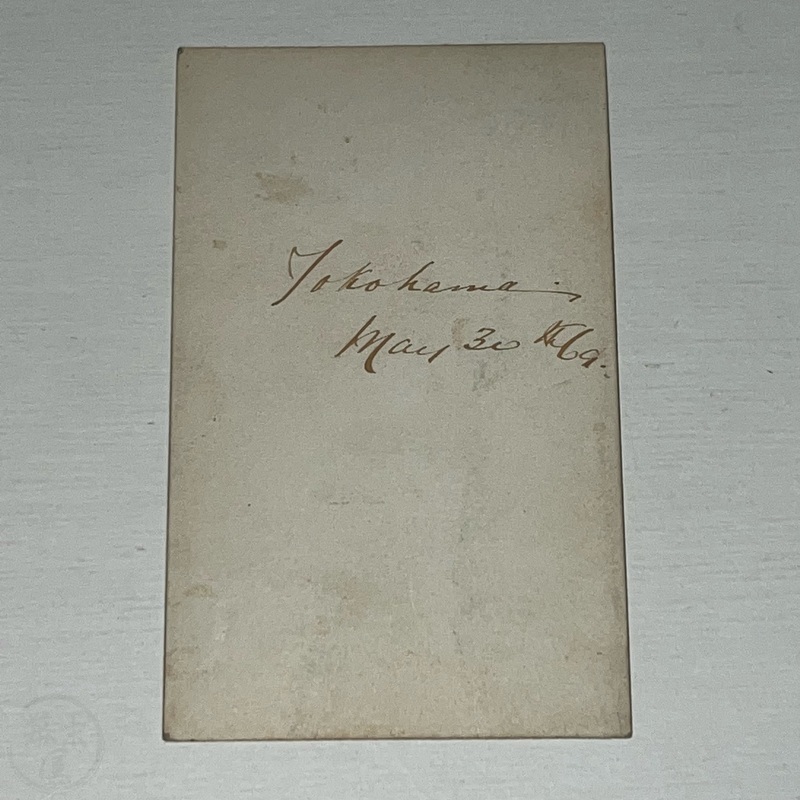 Yokohama
May 30th 69.